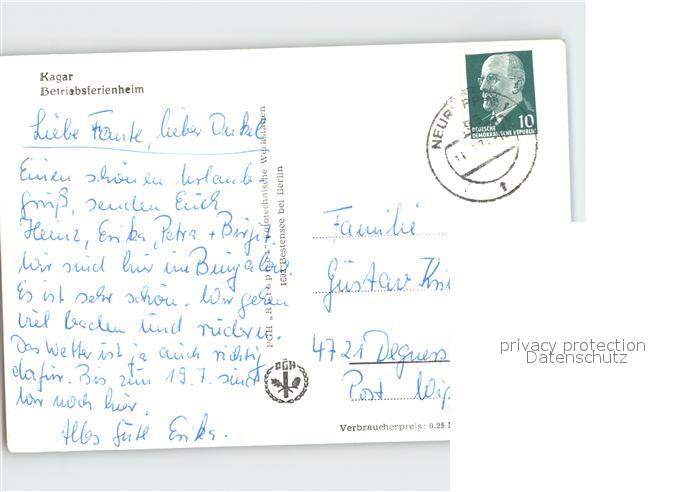 Kagar
Betriebsferienheim
Liebe Tante, lieber Onkel
Einen schönen Urlaubs-
gruß, senden Euch
Heinz, Erika, Petra + Birgit.
Wir sind hier im Bungalow
Es ist sehr schön. Wir gehen
viel baden und rudern.
Das Wetter ist ja auch richtig
dafür. Bis zum 19.7. sind
wir noch hier.
Alles Gute Erika.
PGH „Rotophot" Fototechnische Werkstätten
1602 Bestensee bei Berlin
PGH
NEUR
10
DEUTSCHE
DEMOKRATISCHE REPUBLIK
Familie
Gustav
4721
Post
Verbraucherpreis: 0.25
privacy protection
Datenschutz